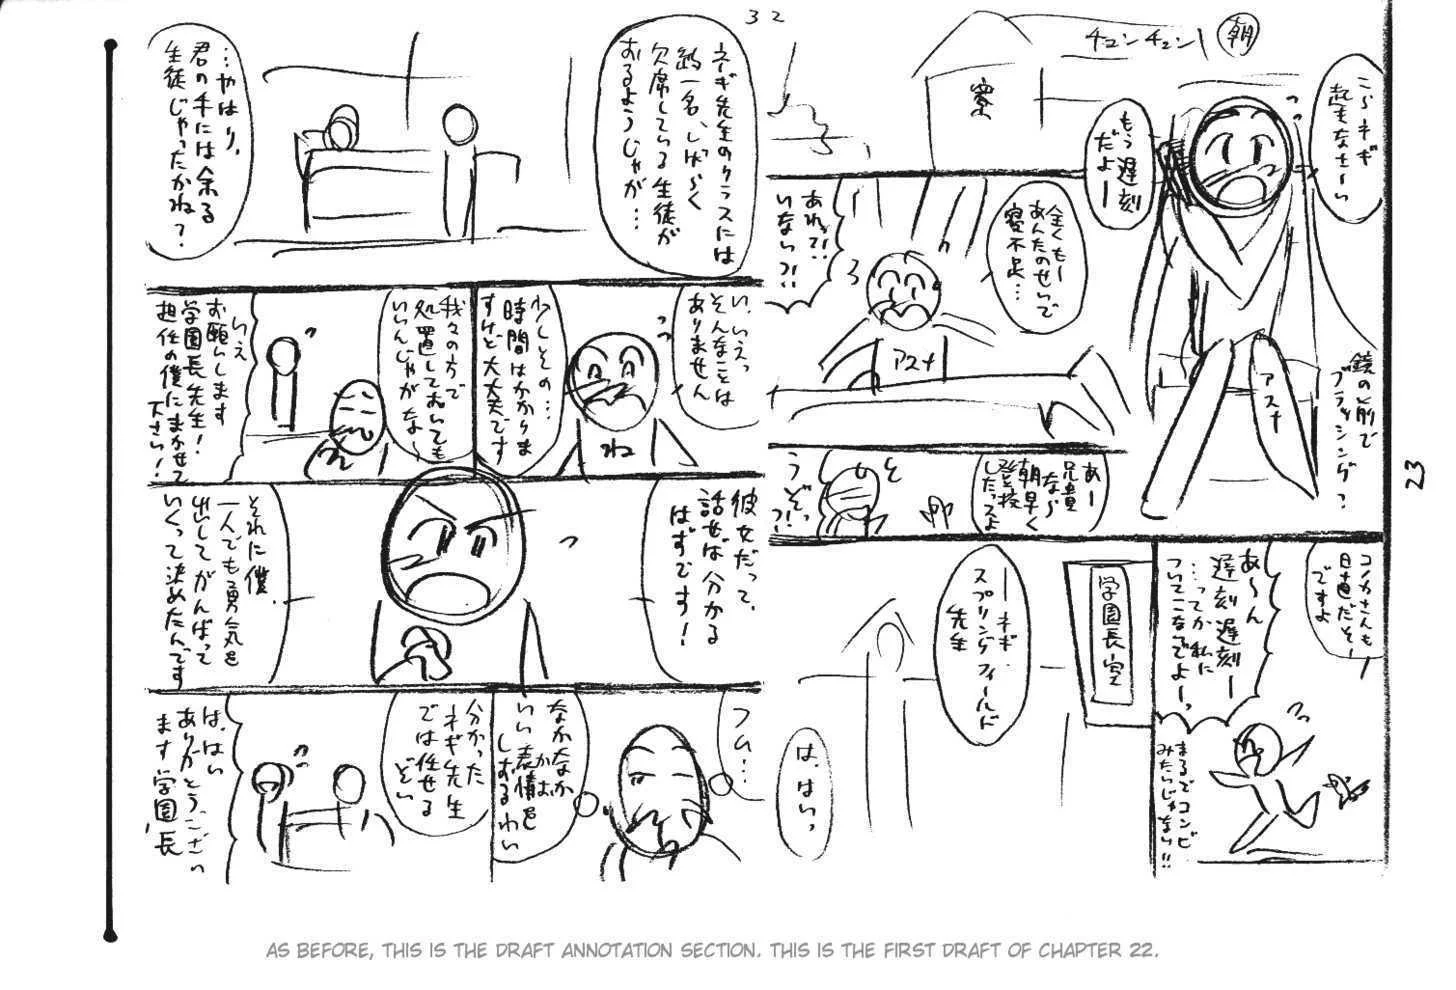 32
朝
チュン チュン
寮
こ〜ネギ
起きなさ〜い
もう遅刻
だよー
鏡の前で
ブラッシング?
アスナ
全くもー
あんたのせいで
寝不足…
あれ?!
いない?!
アスナ
あー
兄貴
なら〜
朝早く
登校
したっスよ
うそっ?!
コノカさんも
日直だそー
ですよ
あ〜ん
遅刻遅刻ー
…ってか私に
ついてこないでよーっ
まるでコンビ
みたいじゃない!!
学園長室
—ネギ・
スプリングフィールド
先生
は、はいっ
23
ネギ先生のクラスには
約一名、しばらく
欠席している生徒が
おるようじゃが…
…やはり、
君の手には余る
生徒じゃったかね?
い、いえっ
そんなことは
ありません
少しその…
時間はかかりま
すけど大丈夫です
ね
我々の方で
処置しておいても
いいんじゃがなー
いえ
お願いします
学園長先生!
担任の僕にまかせて
下さい!
彼女だって、
話せば分かる
はずです!
それに僕、
一人でも勇気を
出してがんばって
いくって決めたんです
フム…
なかなか
いい表情を
かお
しおるわい
分かった
ネギ先生
では任せる
ぞい
は、はい
ありがとうござい
ます学園長
AS BEFORE, THIS IS THE DRAFT ANNOTATION SECTION. THIS IS THE FIRST DRAFT OF CHAPTER 22.